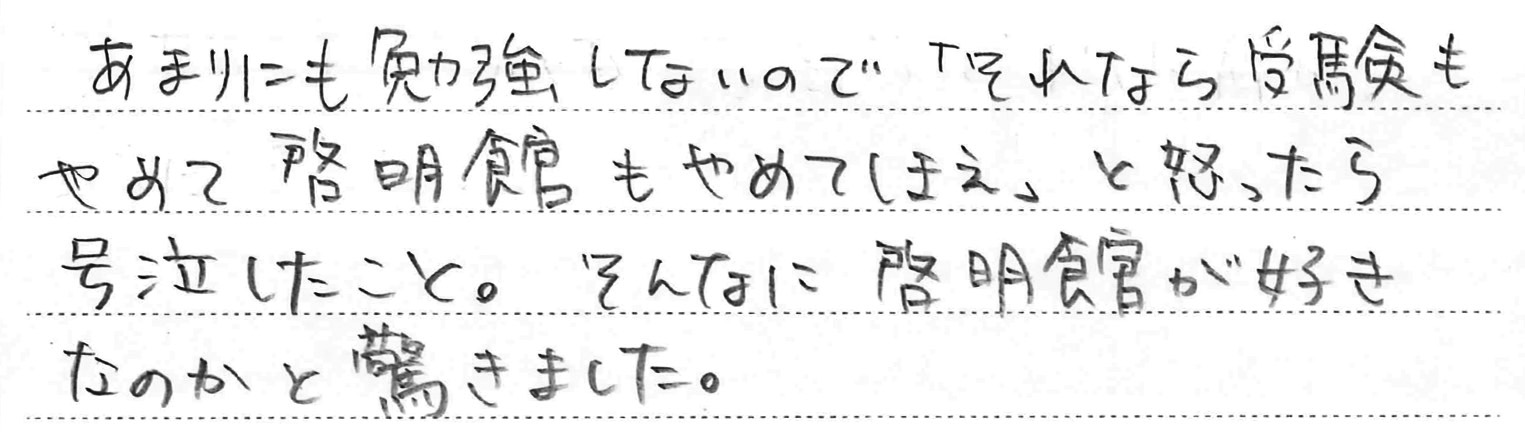 あまりにも勉強してないので「それなら受験も
やめて啓明館もやめてしまえ」と怒ったら
号泣したこと。そんなに啓明館が好き
なのかと驚きました。